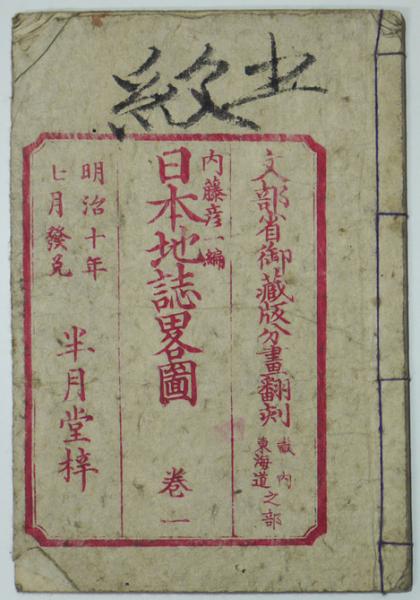 文部省御藏版分畫翻刻
畿内
東海道之部
内藤彦一編
日本地誌畧圖
巻一
明治十年
七月發兌
半月堂梓